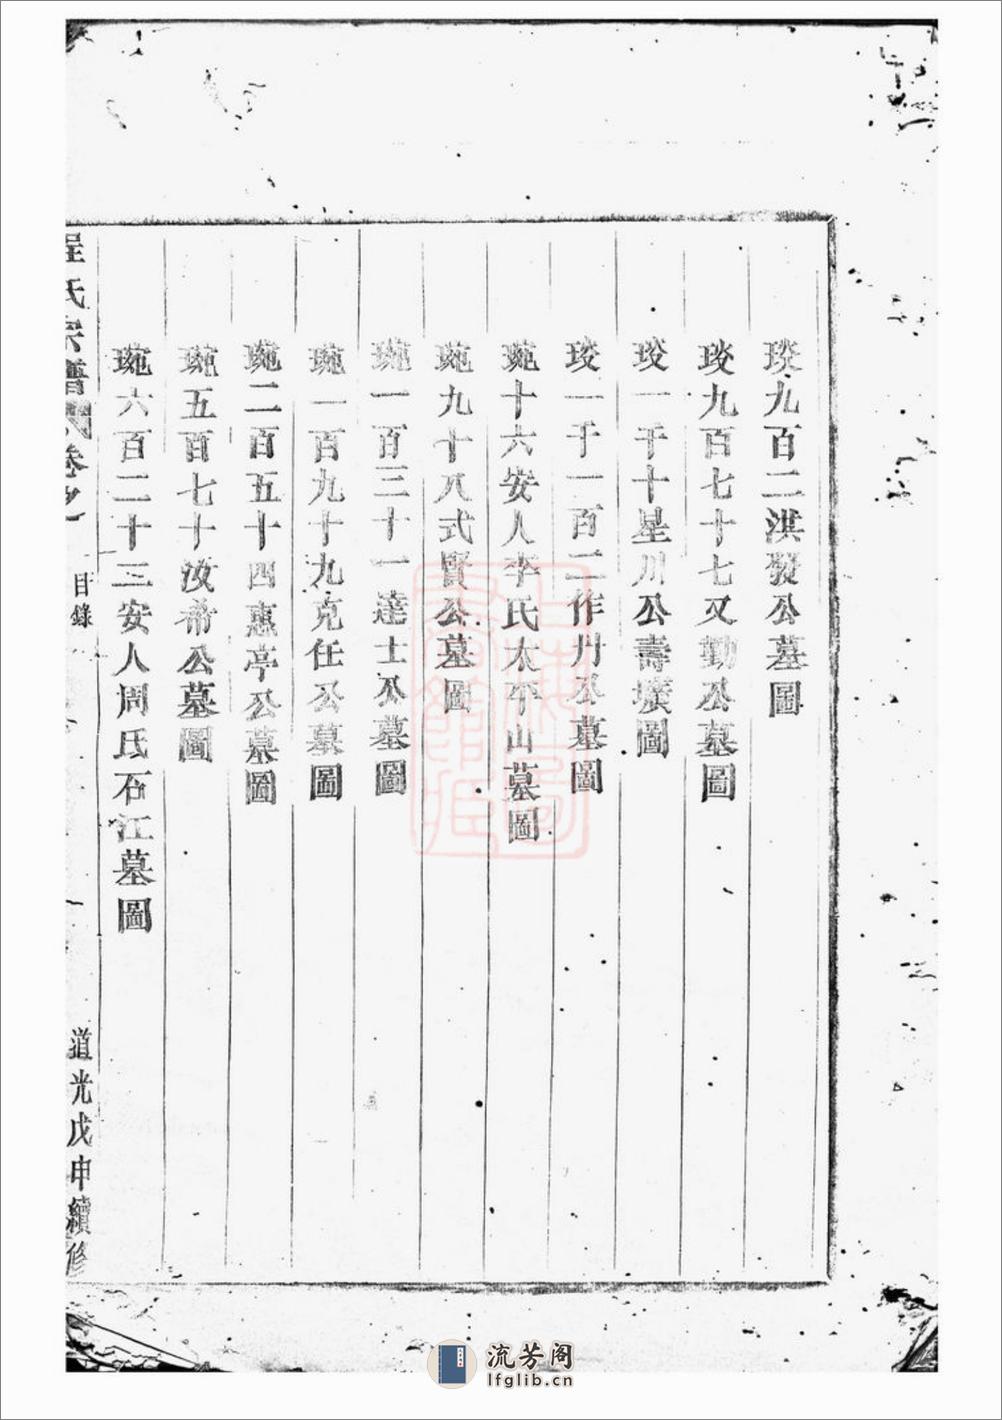 琰九百二洪發公墓圖
琰九百七十七又勤公墓圖
琰一千十星川公壽壙圖
琰一千一百二作丹公墓圖
琬十六安人李氏太平山墓圖
琬九十八式賢公墓圖
琬一百三十一達士公墓圖
琬一百九十九克任公墓圖
琬二百五十四惠亭公墓圖
琬五百七十汝帝公墓圖
琬六百二十三安人周氏石江墓圖
程氏宗譜 卷之 目錄 道光戊申續修
流芳阁
lfglib.cn